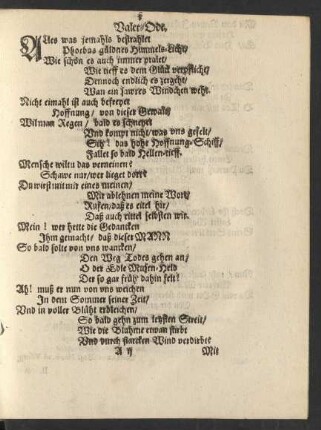 Valet-Ode.
Alles was jemahls bestrahlet
Phoebus güldnes Himmels-Licht/
Wie schön es auch immer pralet/
Wie tieff es dem Glück verpflicht/
Dennoch endlich es zergeht/
Wan ein sawres Windchen weht.
Nicht eimahl ist auch befreyet
Hoffnung/ von dieser Gewalt/
Wil man Regen/ bald es schneyet
Und kompt nicht/ was uns gefelt/
Sih! das hohe Hoffnungs-Schiff/
Fallet so bald Hellen-tieff.
Mensche wiltu das verneinen?
Schawe nur/ wer lieget dort?
Du wirst mit mir eines meinen/
Mit ablehnen meine Wort/
Rufen/ daß es eitel hir/
Daß auch eitel selbsten wir.
Mein! wer hette die Gedancken
Ihm gemacht/ daß dieser MANN
So bald solte von uns wancken/
Den Weg Todes gehen an/
O der Edle Musen-Held
Der so gar früh dahin felt!
Ah! muß er nun von uns weichen
In dem Sommer seiner Zeit/
Vnd in voller Blüht erbleichen/
So bald gehn zum letzten Streit/
Wie die Bluhme etwan stirbt
Vnd durch starcken Wind verdirbt
A ij Mit